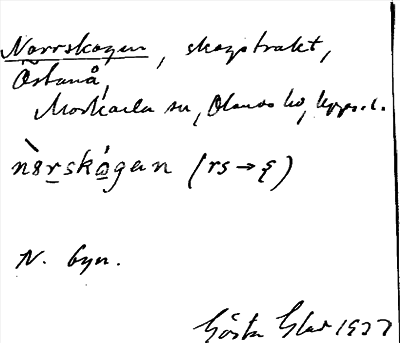 Norrskogen, skogstrakt,
Östanå,
Morkarla sn, Olands hd, Upps. l.
nòrskógan (rs → ʂ)
N. byn.
Gösta Glad 1937